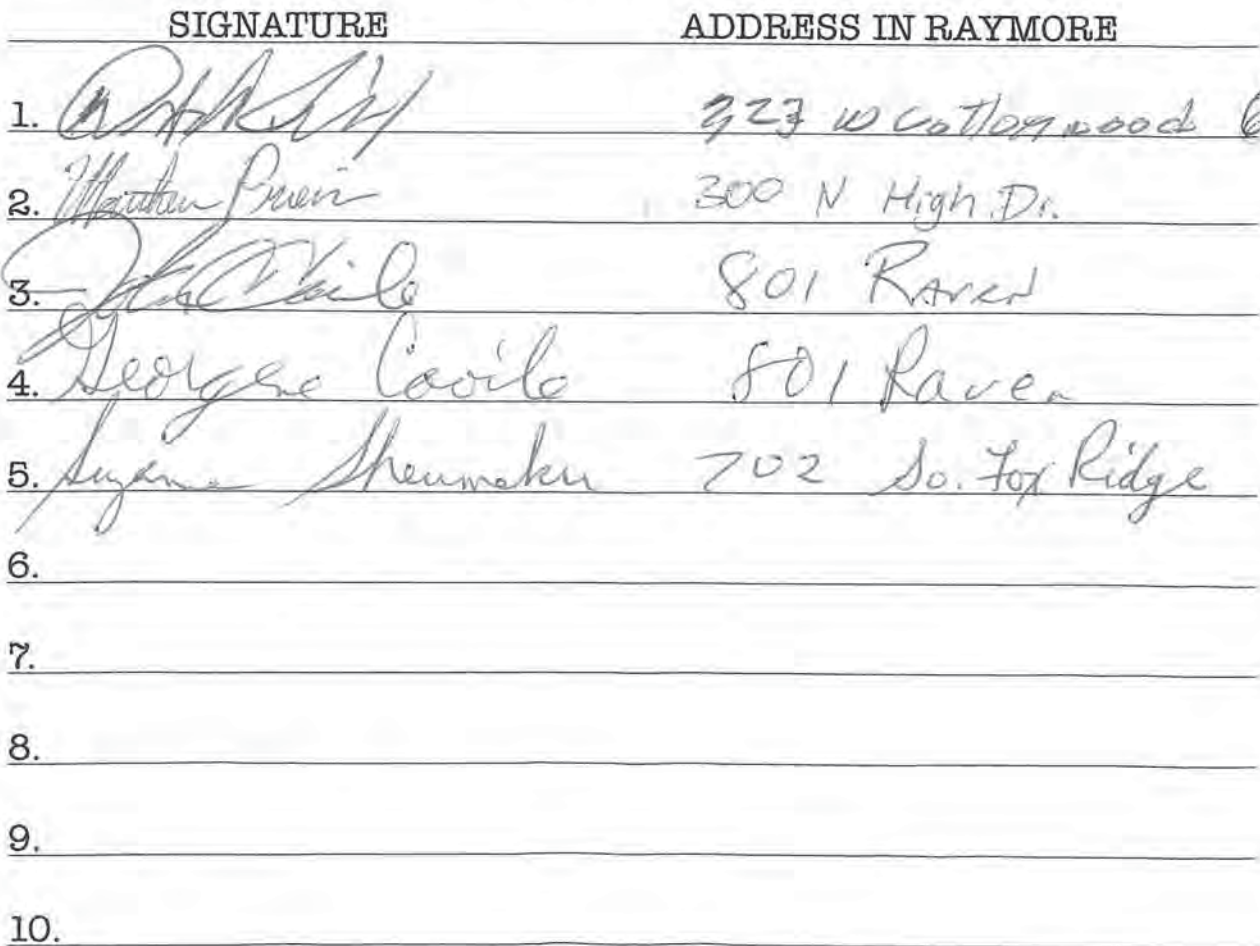 SIGNATURE ADDRESS IN RAYMORE
1. W Cottonwood
2. 300 N High Dr.
3. 801 Raven
4. Georgene Cavile 801 Raven
5. Suzanne Sheumaker 702 So. Fox Ridge
6.
7.
8.
9.
10.